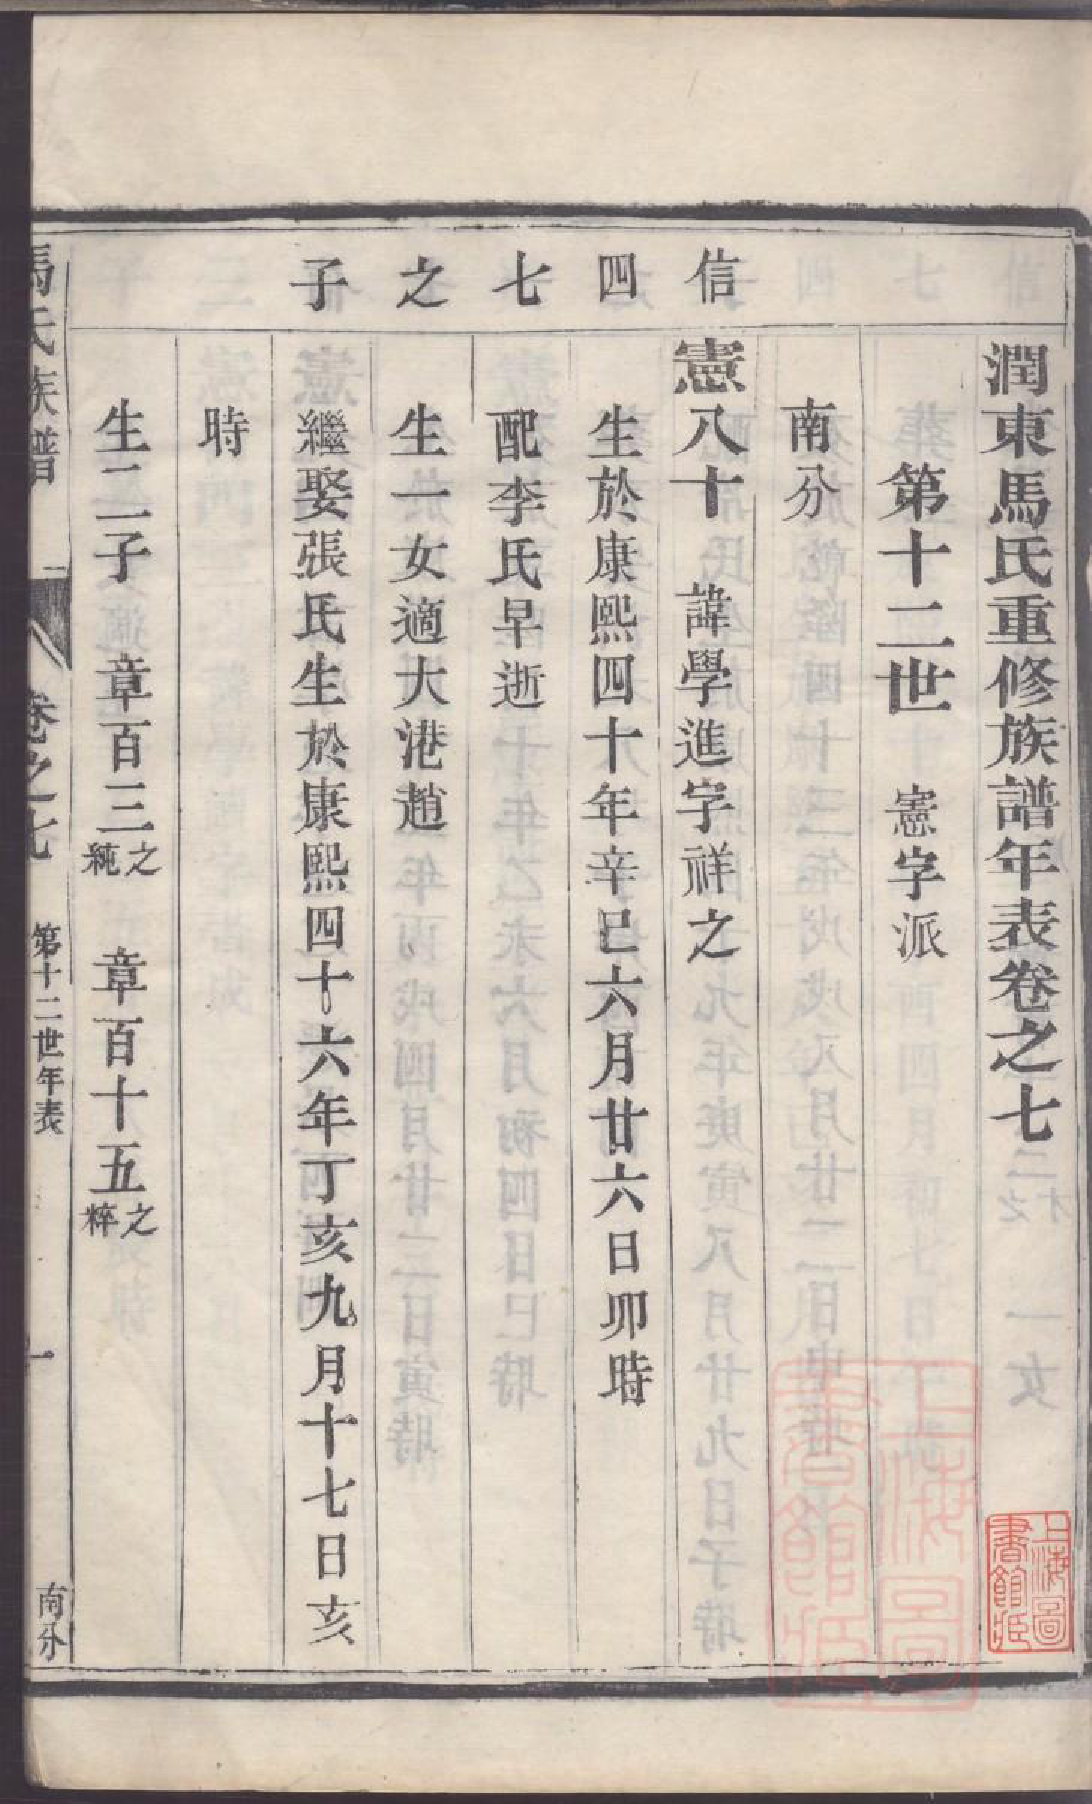 潤東馬氏重修族譜年表卷之七
第十二世　憲字派
南分
信四七之子
憲八十　諱學進字祥之
生於康熙四十年辛巳六月廿六日卯時
配李氏早逝
生一女適大港趙
繼娶張氏生於康熙四十六年丁亥九月十七日亥
時
生二子　章百三之純　章百十五之粹
馬氏族譜　卷之七　第十二世年表　一　南分
上海圖書館藏
上海圖書館藏